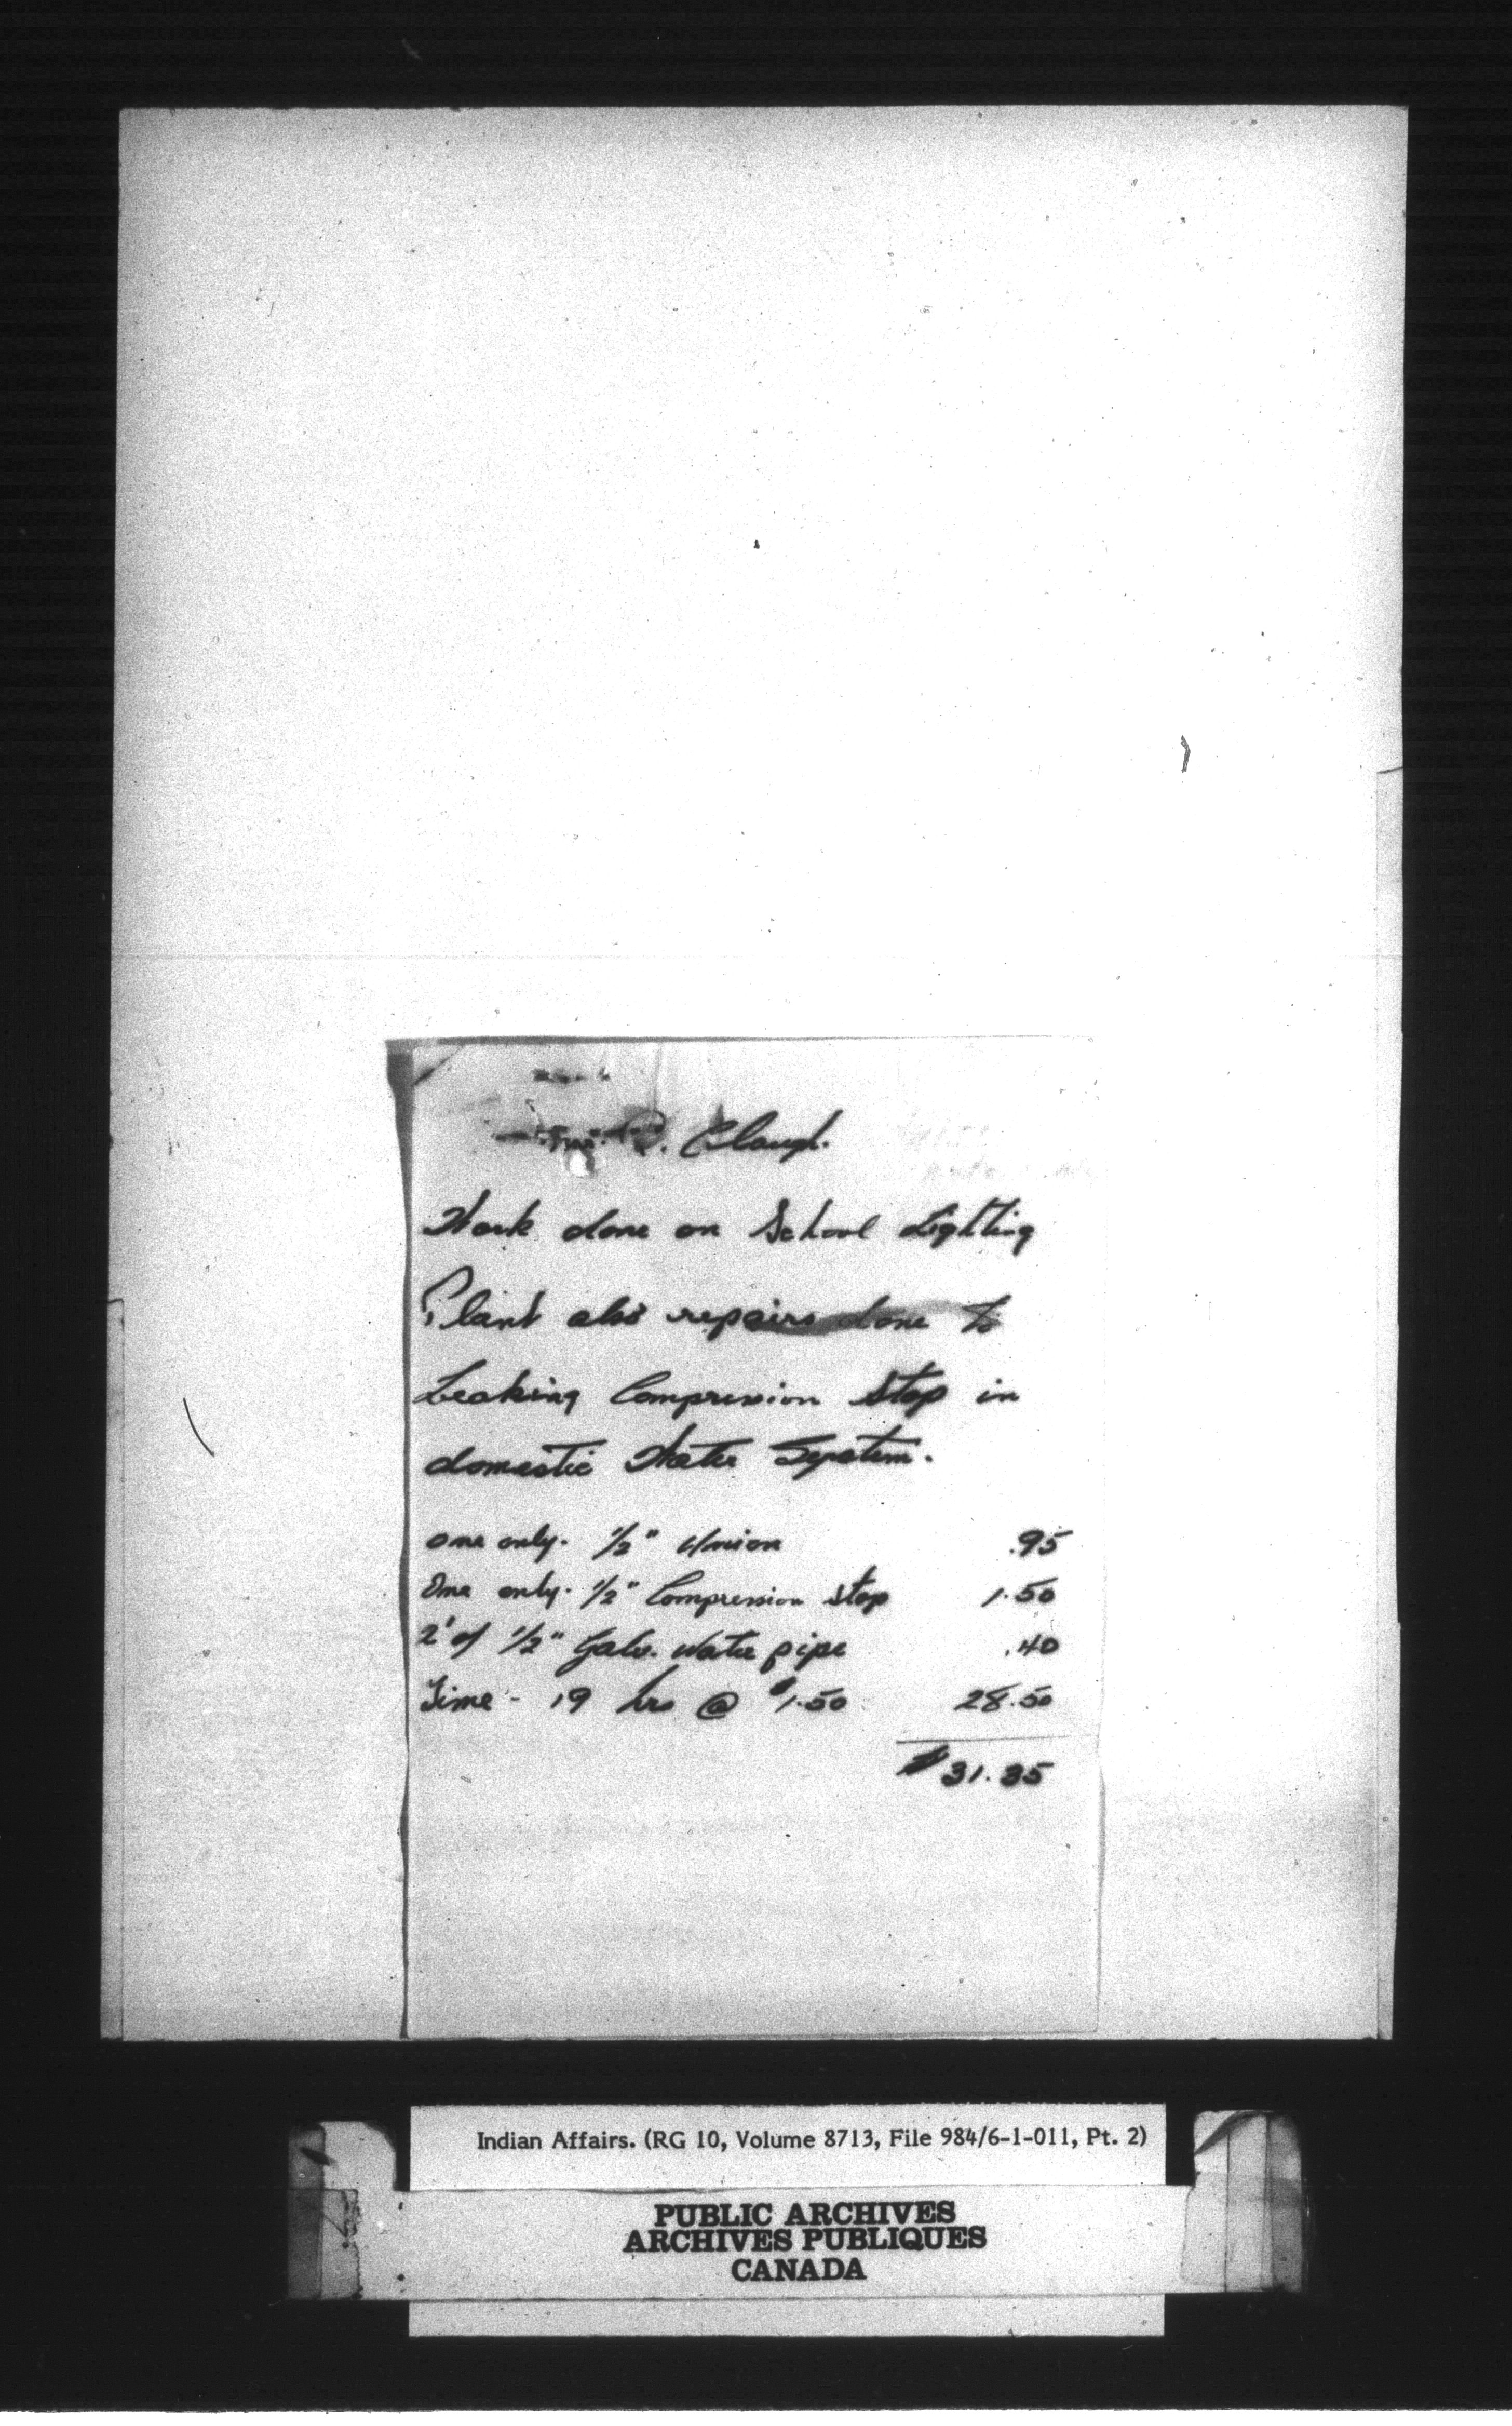 R. Clough.
Work done on School Lighting
Plant also repairs done to
Leaking Compression Stop in
domestic Water System.
one only. 1/2" Union .95
One only. 1/2" Compression Stop 1.50
2' of 1/2" Galv. Water pipe .40
Time - 19 hrs @ $1.50 28.50
$31.35
Indian Affairs. (RG 10, Volume 8713, File 984/6-1-011, Pt. 2)
PUBLIC ARCHIVES
ARCHIVES PUBLIQUES
CANADA